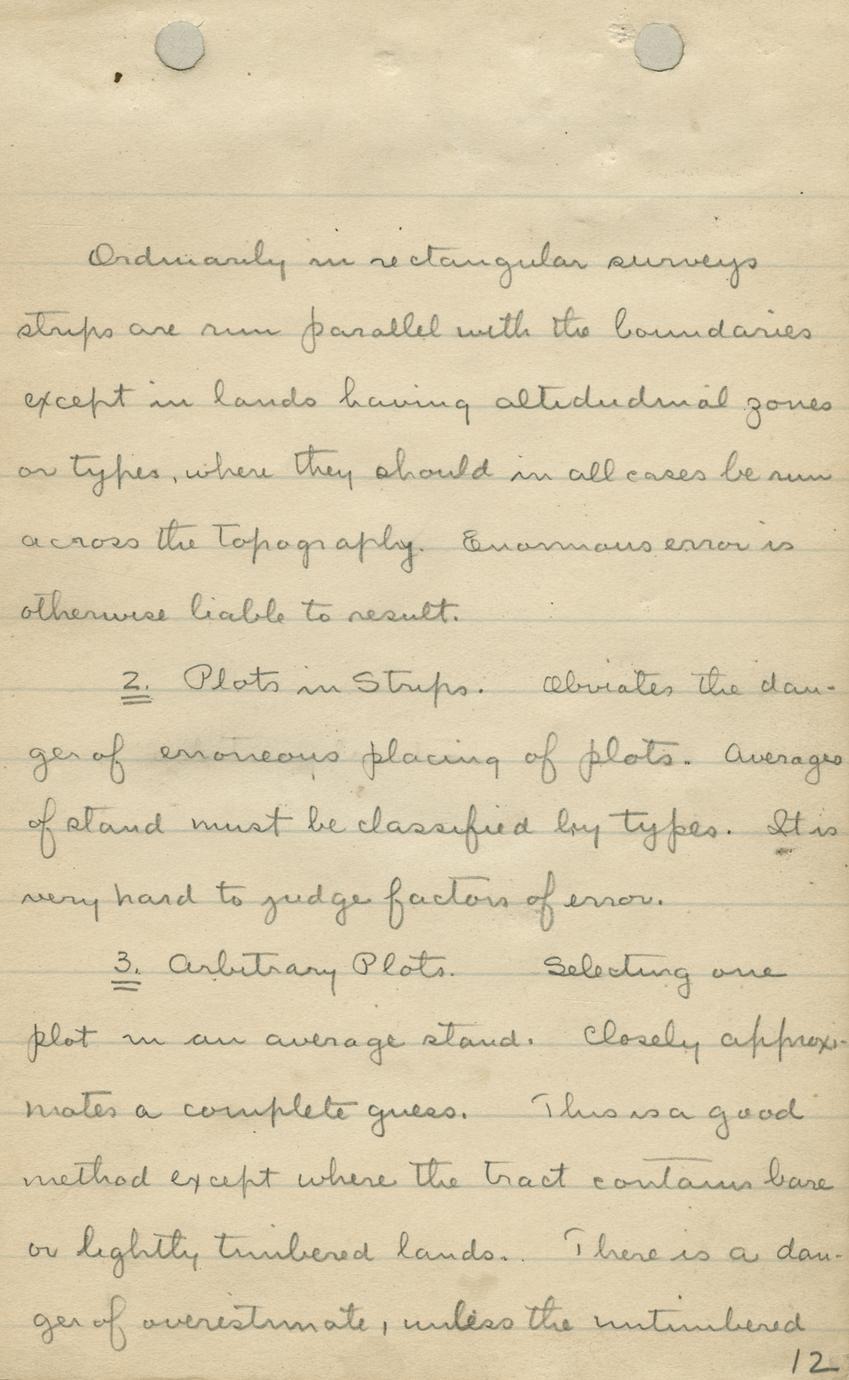 Ordinarily in rectangular surveys
strips are run parallel with the boundaries
except in lands having altidudinal zones
or types, where they should in all cases be run
across the topography. Enormous error is
otherwise liable to result.
2. Plots in Strips. Obviates the dan-
ger of erroneous placing of plots. Averages
of stand must be classified by types. It is
very hard to judge factors of error.
3. Arbitrary Plots. Selecting one
plot in an average stand. Closely approxi-
mates a complete guess. This is a good
method except where the tract contains bare
or lightly timbered lands. There is a dan-
ger of overestimate, unless the untimbered
12